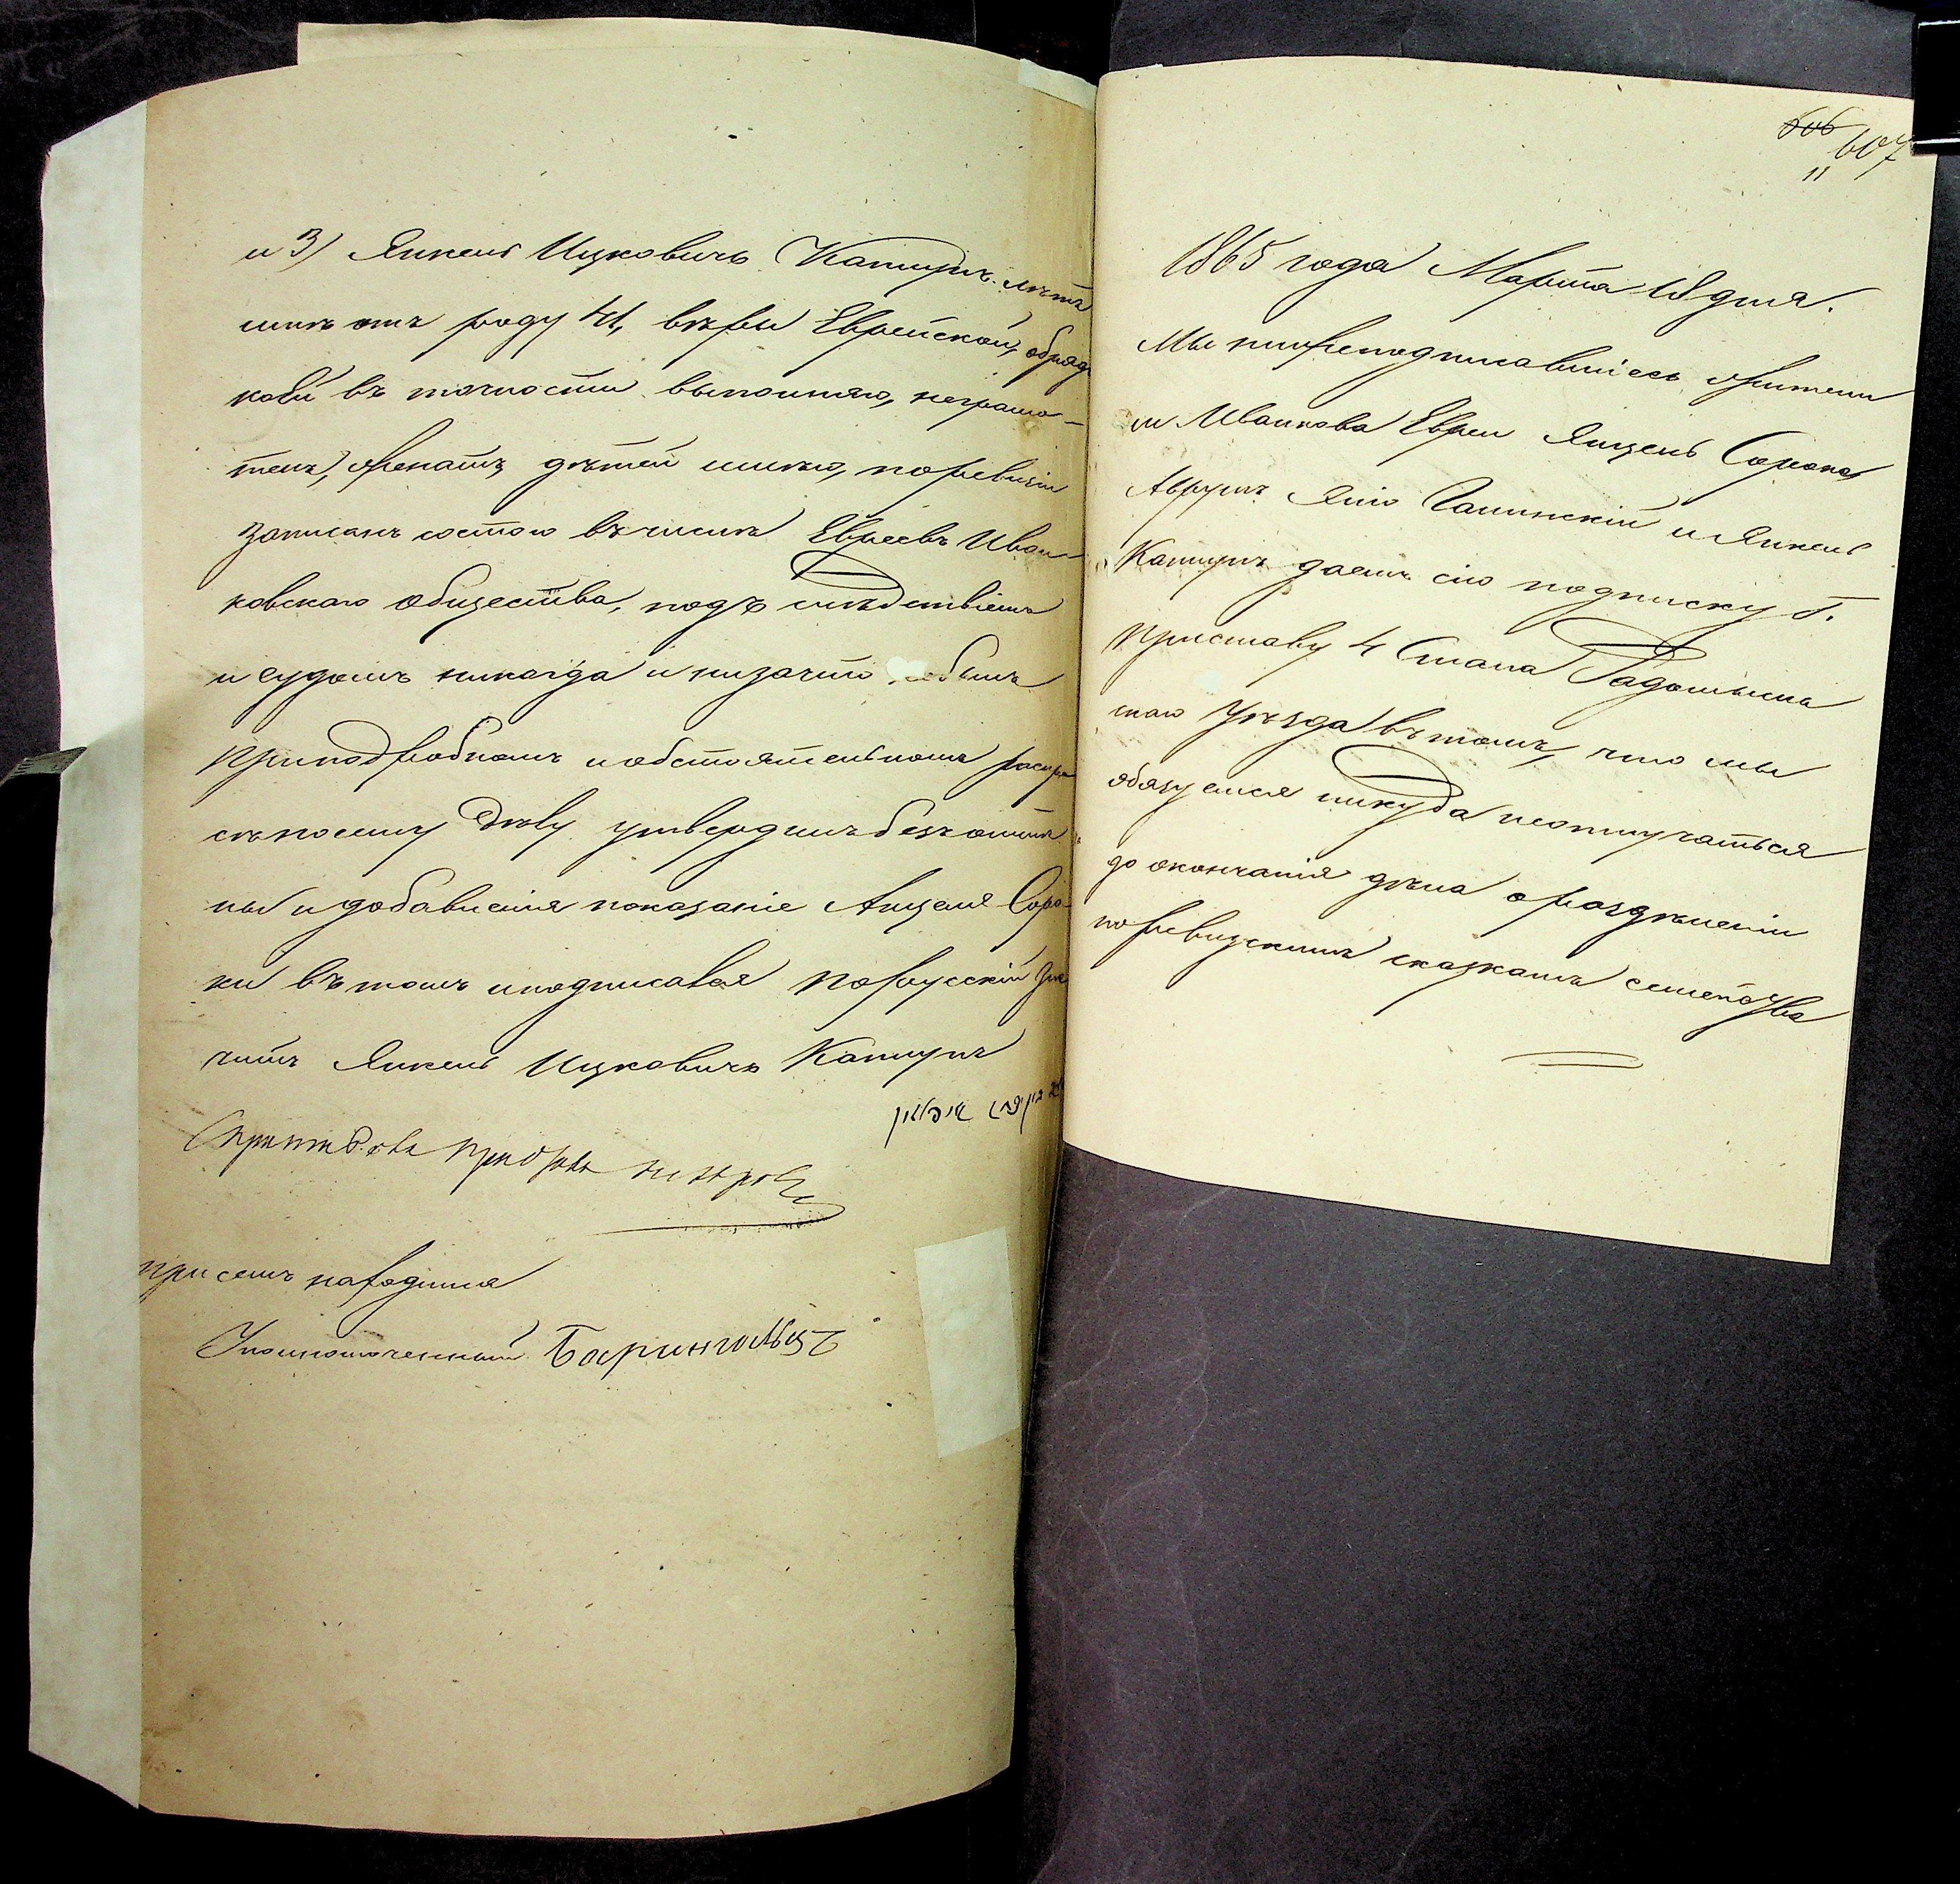 и 3) Янкель Ицковичъ Кацупъ. лѣтъ
мнѣ отъ роду 41, вѣры Еврейской, обряды
коей въ точности выполняю, неграмо-
тенъ, женатъ, дѣтей имѣю, по ревизіи
записанъ состою въ числѣ Евреевъ Иван-
ковскаго общества, подъ слѣдствіемъ
и судомъ никогда и низачто небылъ
при подробномъ и обстоятельномъ распро
съ по сему дѣлу утвердилъ безъ отмѣ
ны и добавленія показаніе Анцеля Соро
ки въ томъ и подписався по русскій зна
читъ Янкель Ицковичъ Кацупъ
при семъ находился
Уполномоченный
606
607
11
1865 года Марта 18 дня.
Мы нижеподписавшіесь жители
м Иванкова Евреи Янцель Сорока
Аврумъ Яно Галинскій и Янкель
Кацупъ даемъ сію подписку Г.
Приставу 4 Стана Радомысль
скаго уѣзда въ томъ, что мы
обязуемся никуда неотлучаться
до окончанія дѣла о раздѣленіи
по ревизскимъ сказкамъ семейства